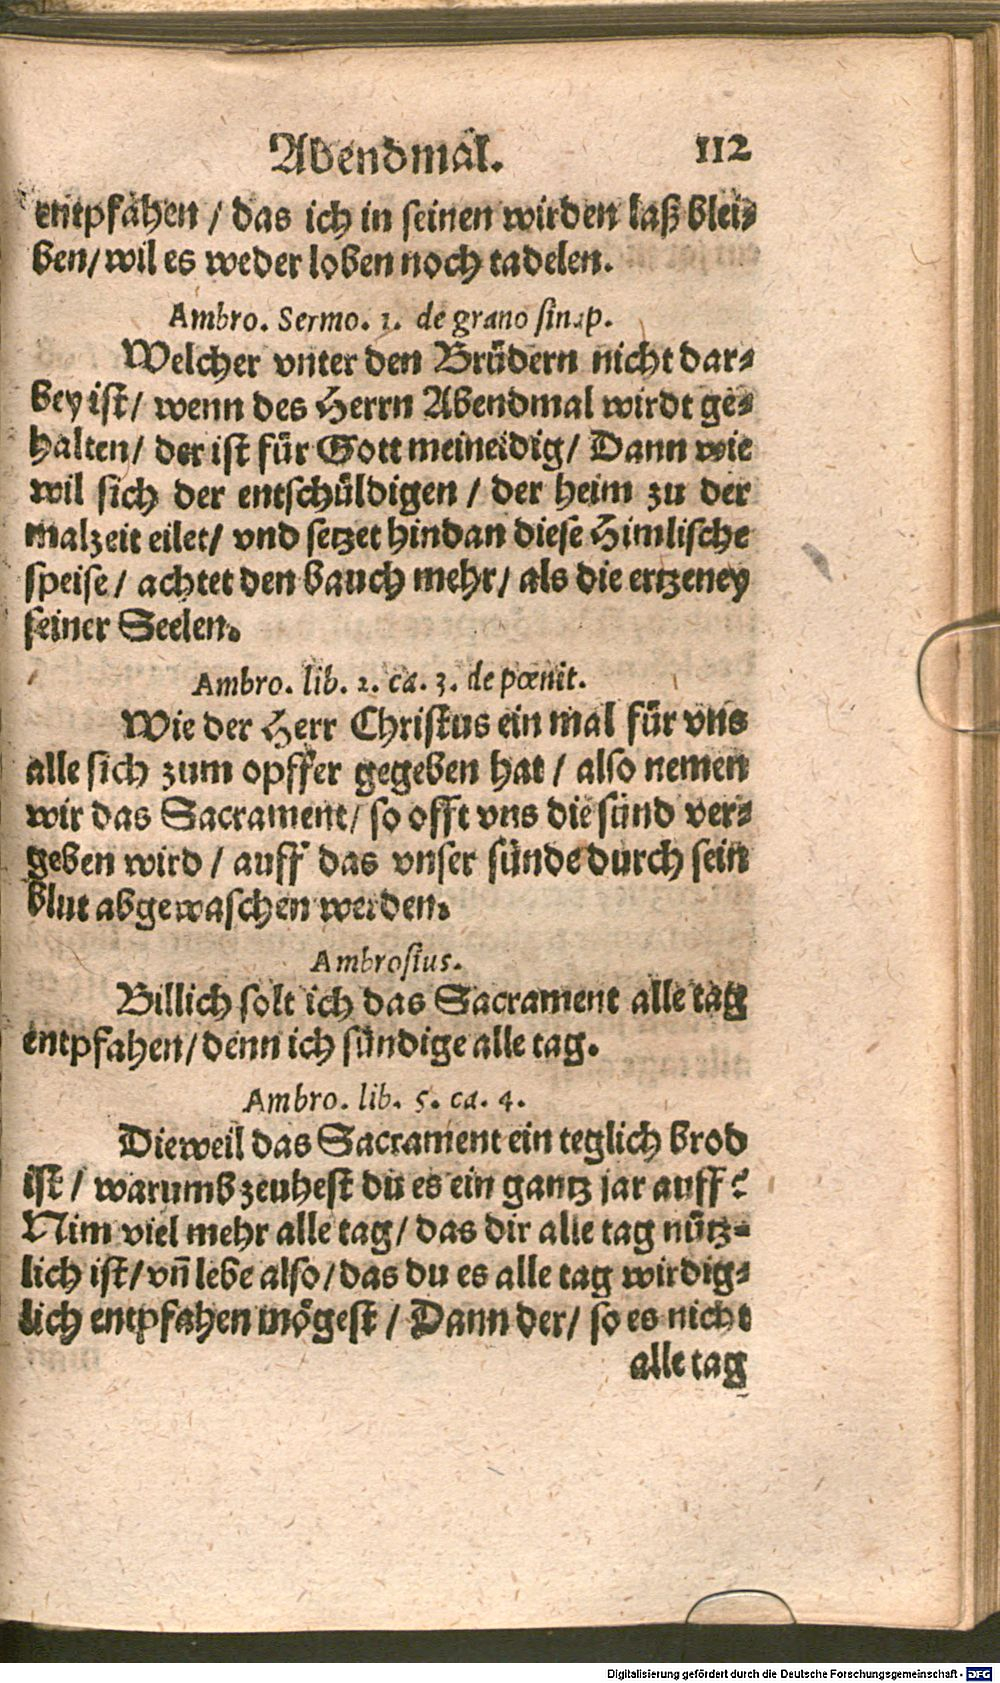 Abendmal. 112
entpfahen / das ich in seinen wirden laß blei⸗
ben/ wil es weder loben noch tadelen.
Ambro. Sermo. 1. de grano sinap.
Welcher vnter den Brüdern nicht dar⸗
bey ist/ wenn des Herrn Abendmal wirdt ge⸗
halten/ der ist für Gott meineidig/ Dann wie
wil sich der entschüldigen / der heim zu der
malzeit eilet/ vnd setzet hindan diese Himlische
speise / achtet den bauch mehr/ als die ertzeney
seiner Seelen.
Ambro. lib. 2. ca. 3. de pœnit.
Wie der Herr Christus ein mal für vns
alle sich zum opffer gegeben hat / also nemen
wir das Sacrament/ so offt vns die sünd ver⸗
geben wird / auff das vnser sünde durch sein
blut abgewaschen werden.
Ambrosius.
Billich solt ich das Sacrament alle tag
entpfahen/ denn ich sündige alle tag.
Ambro. lib. 5. ca. 4.
Dieweil das Sacrament ein teglich brod
ist / warumb zeuhest du es ein gantz jar auff?
Nim viel mehr alle tag/ das dir alle tag nütz⸗
lich ist/ vñ lebe also/ das du es alle tag wirdig⸗
lich entpfahen mögest / Dann der/ so es nicht
alle tag
Digitalisierung gefördert durch die Deutsche Forschungsgemeinschaft - DFG